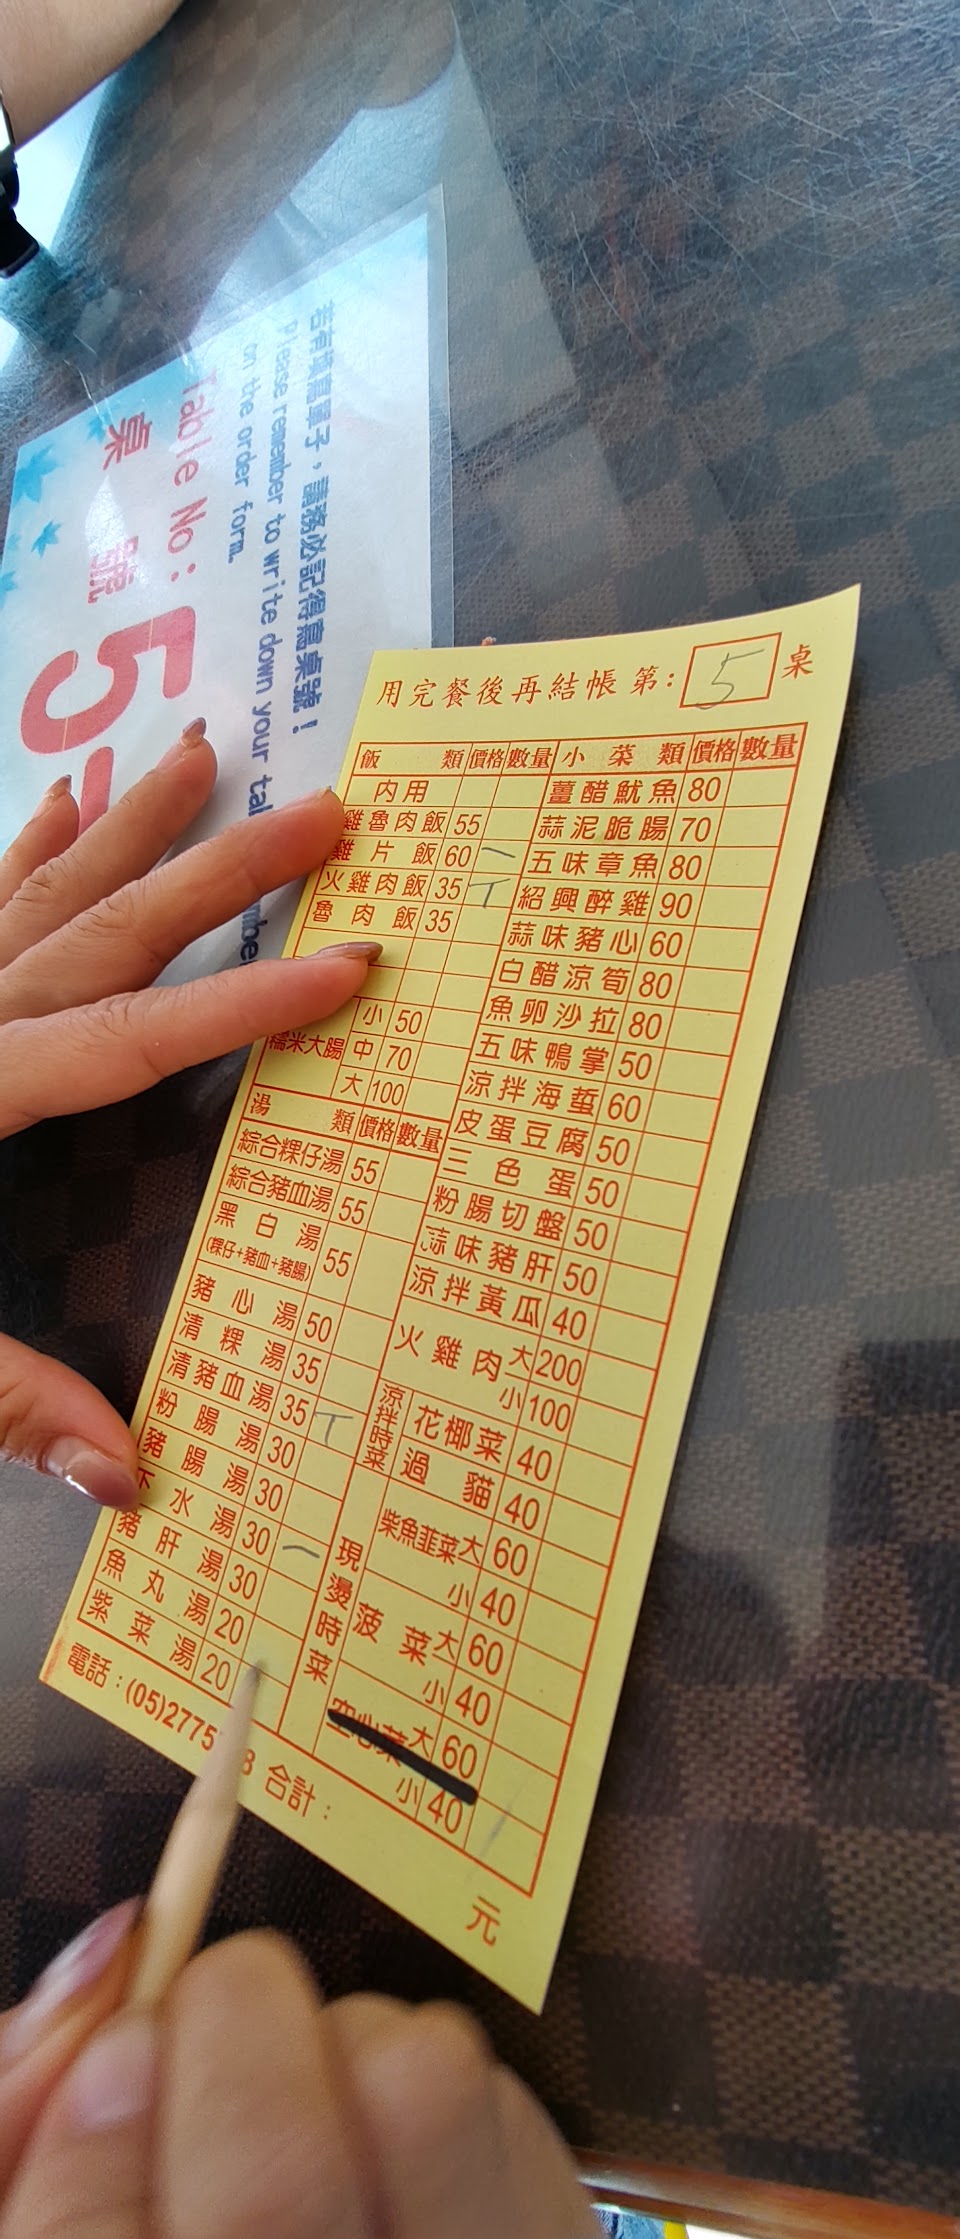 若有填寫單子，請務必記得寫桌號！
Please remember to write down your
on the order form.
Table No:
桌號
5
用完餐後再結帳 第: 5 桌
飯類 價格 數量
內用
雞魯肉飯 55
雞片飯 60 一
火雞肉飯 35 丅
魯肉飯 35
糯米大腸 小 50
中 70
大 100
湯類 價格 數量
綜合粿仔湯 55
綜合豬血湯 55
黑白湯 55
(粿仔+豬血+豬腸)
豬心湯 50
清粿湯 35
清豬血湯 35 丅
粉腸湯 30
豬腸湯 30
下水湯 30 一
豬肝湯 30
魚丸湯 20
紫菜湯 20
小菜類 價格 數量
薑醋魷魚 80
蒜泥脆腸 70
五味章魚 80
紹興醉雞 90
蒜味豬心 60
白醋涼筍 80
魚卵沙拉 80
五味鴨掌 50
涼拌海蜇 60
皮蛋豆腐 50
三色蛋 50
粉腸切盤 50
蒜味豬肝 50
涼拌黃瓜 40
火雞肉 大 200
小 100
涼拌時菜 花椰菜 40
過貓 40
現燙時菜 柴魚韭菜 大 60
小 40
菠菜 大 60
小 40
空心菜 大 60
小 40
電話：(05)2775
合計：
元